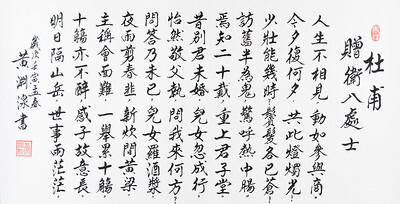 杜甫
贈衛八處士
人生不相見，動如參與商，
今夕復何夕，共此燈燭光，
少壯能幾時，鬢髮各已蒼，
訪舊半為鬼，驚呼熱中腸，
焉知二十載，重上君子堂，
昔別君未婚，兒女忽成行，
怡然敬父執，問我來何方？
問答乃未已，兒女羅酒漿，
夜雨剪春韭，新炊間黃粱，
主稱會面難，一舉累十觴，
十觴亦不醉，感子故意長，
明日隔山岳，世事兩茫茫，
歲次壬寅孟春
黃淵書